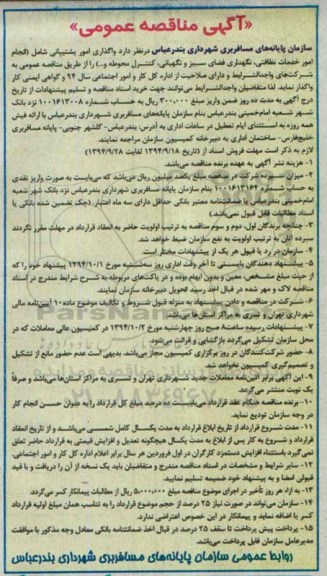 «آگهی مناقصه عمومی»
سازمان پایانه‌های مسافربری شهرداری بندرعباس درنظر دارد واگذاری امور پشتیبانی شامل (انجام
امور خدمات نظافتی، نگهداری فضای سبز و نگهبانی، کنترل محوطه و...) را از طریق مناقصه عمومی به
شرکت‌های واجدالشرایط و دارای صلاحیت از اداره کل کار و امور اجتماعی سال ۹۴ و گواهی ایمنی کار
واگذار نماید. لذا متقاضیان واجدالشرایط می‌توانند جهت خرید اسناد مناقصه و تسلیم پیشنهادات از تاریخ
درج آگهی به مدت ده روز ضمن واریز مبلغ ۳۰۰.۰۰۰ ریال به حساب شماره ۱۰۰۱۶۱۳۰۰۸ نزد بانک
شهر شعبه امام‌خمینی بندرعباس بنام سازمان پایانه‌های مسافربری شهرداری بندرعباس با ارائه فیش
همه روزه به استثنای ایام تعطیل در ساعات اداری به آدرس: بندرعباس- گلشهر جنوبی- پایانه مسافربری
خلیج‌فارس- ساختمان اداری به دبیرخانه کمیسیون سازمان مراجعه نمایند.
لازم به ذکر است مهلت فروش اسناد از (تاریخ ۱۳۹۴/۹/۱۸ لغایت ۱۳۹۴/۹/۲۸)
۱- هزینه نشر آگهی به عهده برنده مناقصه می‌باشد.
۲- میزان سپرده شرکت در مناقصه مبلغ یکصد میلیون ریال می‌باشد که می‌بایست به صورت واریز نقدی
به حساب شماره ۱۰۰۱۶۱۳۱۶۴ بنام سازمان پایانه مسافربری شهرداری بندرعباس نزد بانک شهر شعبه
امام‌خمینی بندرعباس یا ضمانتنامه معتبر بانکی حداقل دارای سه ماه اعتبار. (چک تضمین شده بانکی یا
اسناد مطالبات قابل قبول نمی‌باشد)
۳- چنانچه برندگان اول، دوم و سوم مناقصه به ترتیب اولویت حاضر به انعقاد قرارداد در مهلت مقرر نگردند
سپرده آنان به ترتیب اولویت به نفع سازمان ضبط خواهد شد.
۴- سازمان در رد یا قبول هر یک از پیشنهادات مختار است.
۵- پیشنهاد دهندگان بایستی تا آخر وقت اداری روز سه‌شنبه مورخ ۱۳۹۴/۱۰/۱ پیشنهاد خود را که
از حیث مبلغ مشخص معین و بدون ابهام بوده و در پاکت‌های مربوطه به شرح شرایط مندرج در اسناد
مناقصه لاک و مهر شده در قبال اخذ رسید تحویل دبیرخانه سازمان نمایند.
۶- شرکت در مناقصه و دادن پیشنهاد به منزله قبول شروط و تکالیف موضوع ماده ۱۰ آیین‌نامه مالی
شهرداری تهران و تسری به مراکز استان‌ها می‌باشد.
۷- پیشنهادات رسیده ساعت صبح روز چهارشنبه مورخ ۱۳۹۴/۱۰/۲ در کمیسیون عالی معاملات که در
محل سازمان تشکیل می‌گردد بازگشایی و قرائت می‌شود.
۸- حضور شرکت‌کنندگان در روز برگزاری کمیسیون مجاز می‌باشد. بدیهی است عدم حضور مانع از تشکیل
و تصمیم‌گیری کمیسیون نخواهد شد.
۹- این آگهی برابر آیین‌نامه معاملات جدید شهرداری تهران و تسری به مراکز استان‌ها می‌باشد و صرفاً
یک نوبت منتشر می‌گردد.
۱۰- برنده مناقصه هنگام عقد قرارداد می‌بایست ده درصد مبلغ کل قرارداد را به عنوان حسن انجام کار
در وجه سازمان تودیع نماید.
۱۱- مدت شروع قرارداد از تاریخ ابلاغ قرارداد به مدت یکسال کامل شمسی می‌باشد. و از تاریخ انعقاد
قرارداد و شروع به کار پس از ابلاغ به مدت یکسال هیچگونه تعدیل و افزایش قیمتی به قرارداد حاضر تعلق
نمی‌گیرد باستثناء افزایش دستمزد کارگران در اول فروردین هر سال برابر اعلام اداره کل کار و امور اجتماعی.
۱۲- سایر شرایط و مشخصات در اسناد مناقصه مندرج و متقاضیان باید یک نسخه از آن را دریافت و با قید
قبولی امضا و به پیشنهاد خود ضمیمه تسلیم نمایند.
۱۳- به ازاء هر روز تأخیر در اجرای موضوع مناقصه مبلغ ۵.۰۰۰.۰۰۰ ریال از مطالبات پیمانکار کسر می‌گردد.
۱۴- سازمان می‌تواند در صورت نیاز ۲۵ درصد از حجم موضوع قرارداد را به تناسب همان مبلغ اولیه قرارداد
کسر یا اضافه نماید و پیمانکار در این خصوص اعتراضی ندارد.
۱۵- پرداخت پیش پرداخت تا سقف ۲۵ درصد در قبال اخذ ضمانتنامه بانکی معادل وجه مذکور با موافقت
مدیرعامل سازمان قابل پرداخت می‌باشد.
روابط عمومی سازمان پایانه‌های مسافربری شهرداری بندرعباس